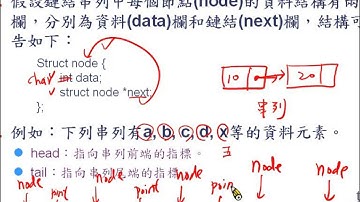 假設鏈結串列中每個節點(node)的資料結構有兩
欄，分別為資料(data)欄和鏈結(next)欄，結構可
告如下：
Struct node {
char int data;
struct node *next;
};
10 20
串列
例如：下列串列有a, b, c, d, x等的資料元素。
head：指向串列前端的指標。
tail：指向串列尾端的指標
node node node node node
point point